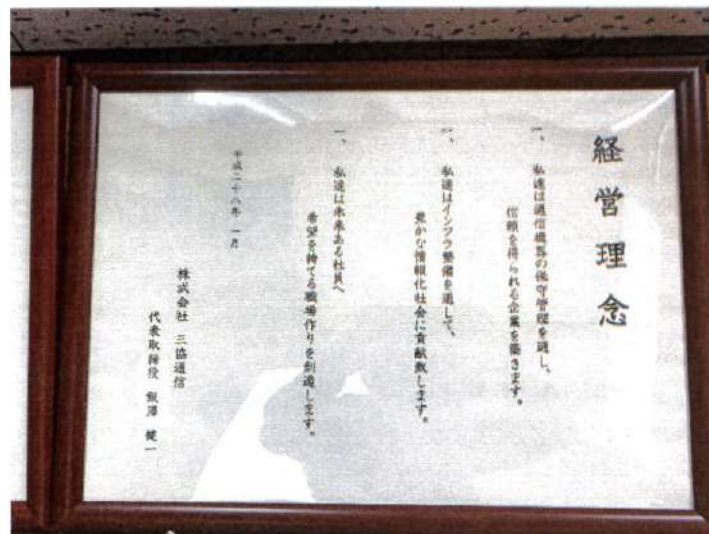 経営理念
一、 私達は通信機器の保守管理を通し、
信頼を得られる企業を築きます。
一、 私達はインフラ整備を通して、
豊かな情報化社会に貢献致します。
一、 私達は未来ある社員へ
希望を持てる職場作りを創造します。
平成二十八年 一月
株式会社 三協通信
代表取締役 飯澤 健一